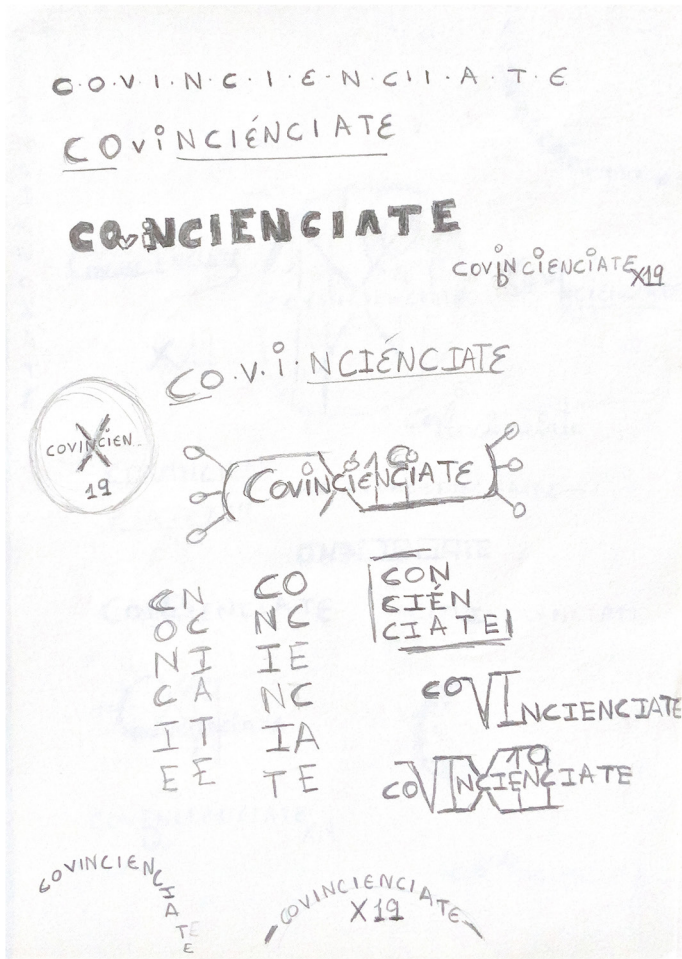 C·O·V·I·N·C·I·E·N·CII·A·T·E
COViNCIÉNCIATE
COViNCIENCIATE
COVINCIENCIATE X19
D
CO·V·i·NCIÉNCIATE
COVINCIEN..
X
19
COVINCIENCIATE
CON
CIÉN
CIATE
CN
OC
NI
CA
IT
EE
CO
NC
IE
NC
IA
TE
COVINCIENCIATE
19
COVINCIENCIATE
COVINCIENCIATE
COVINCIENCIATE
X19